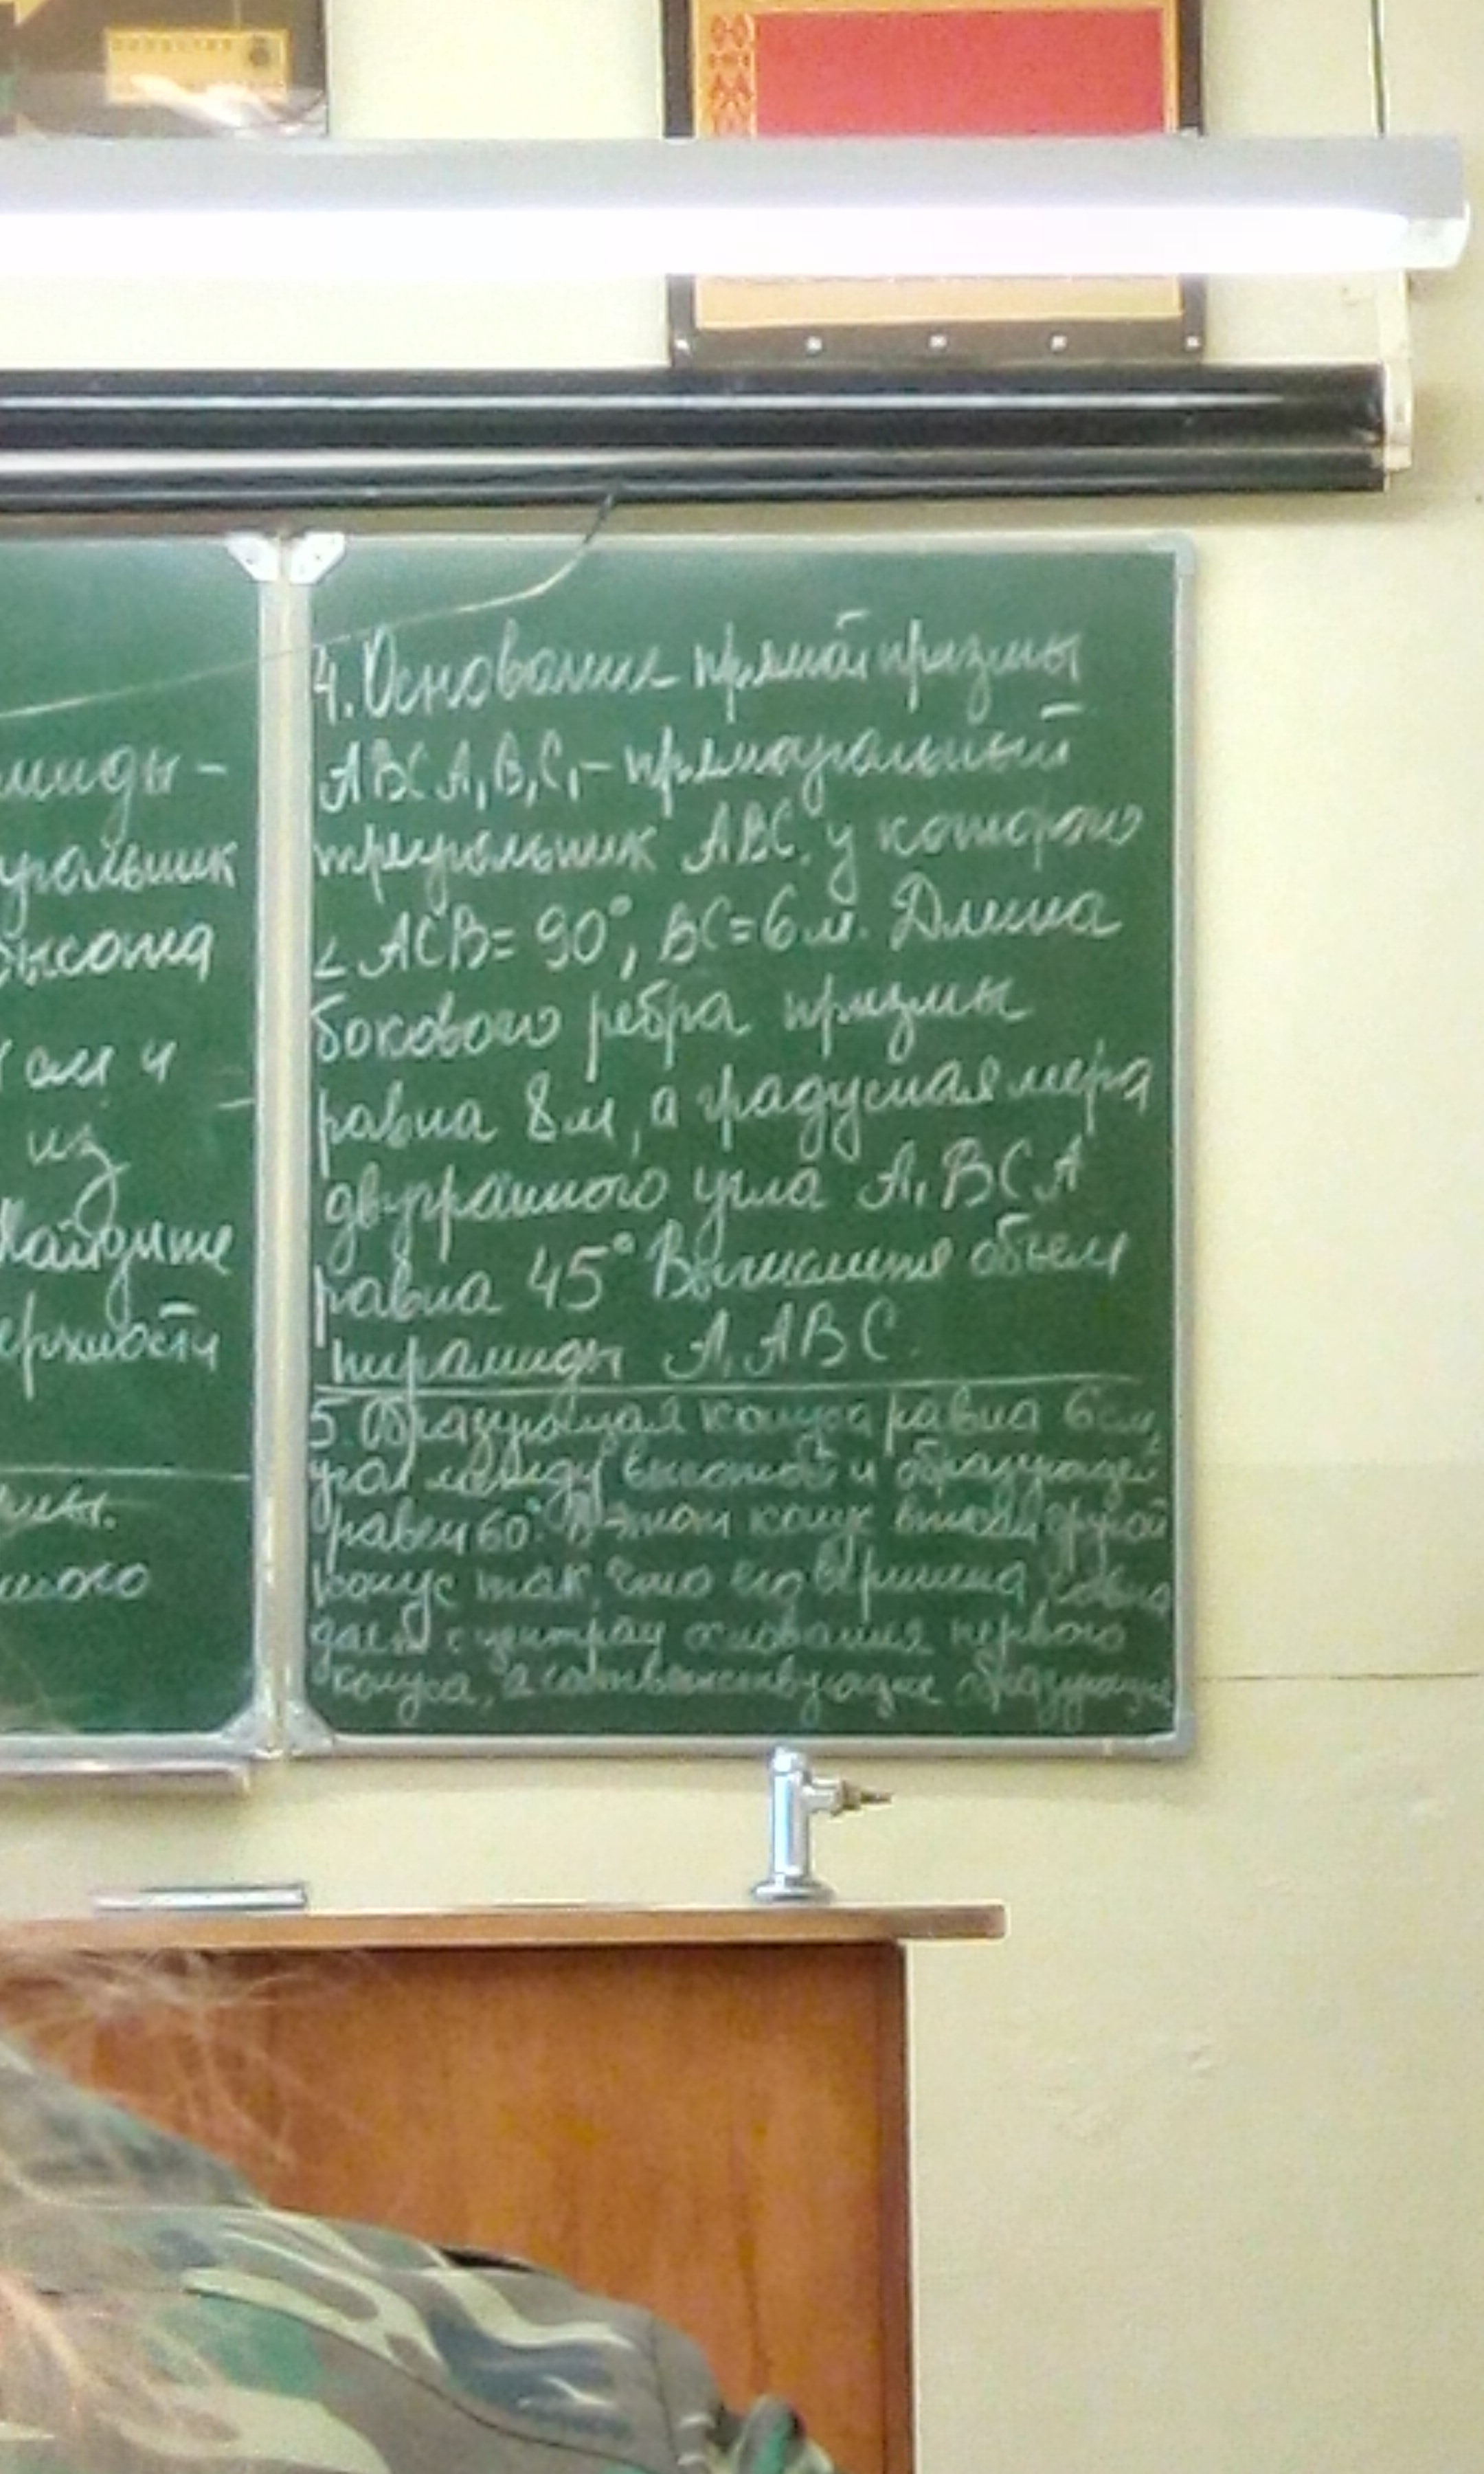 миды-
угольник
высота
см и
из
Найдите
ерхности
4. Основание прямой призмы
ABCA₁B₁C₁ - прямоугольный
треугольник ABC, у которого
∠ ACB = 90°, BC = 6 м. Длина
бокового ребра призмы
равна 8 м, а градусная мера
двугранного угла A₁BCA
равна 45° Вычислите объем
пирамиды A₁ABC.
5. Образующая конуса равна 6 см,
угол между высотой и образующей
равен 60°. В этот конус вписан другой
конус так, что его вершина совпа
дает с центром основания первого
конуса, а соответствующие образующие